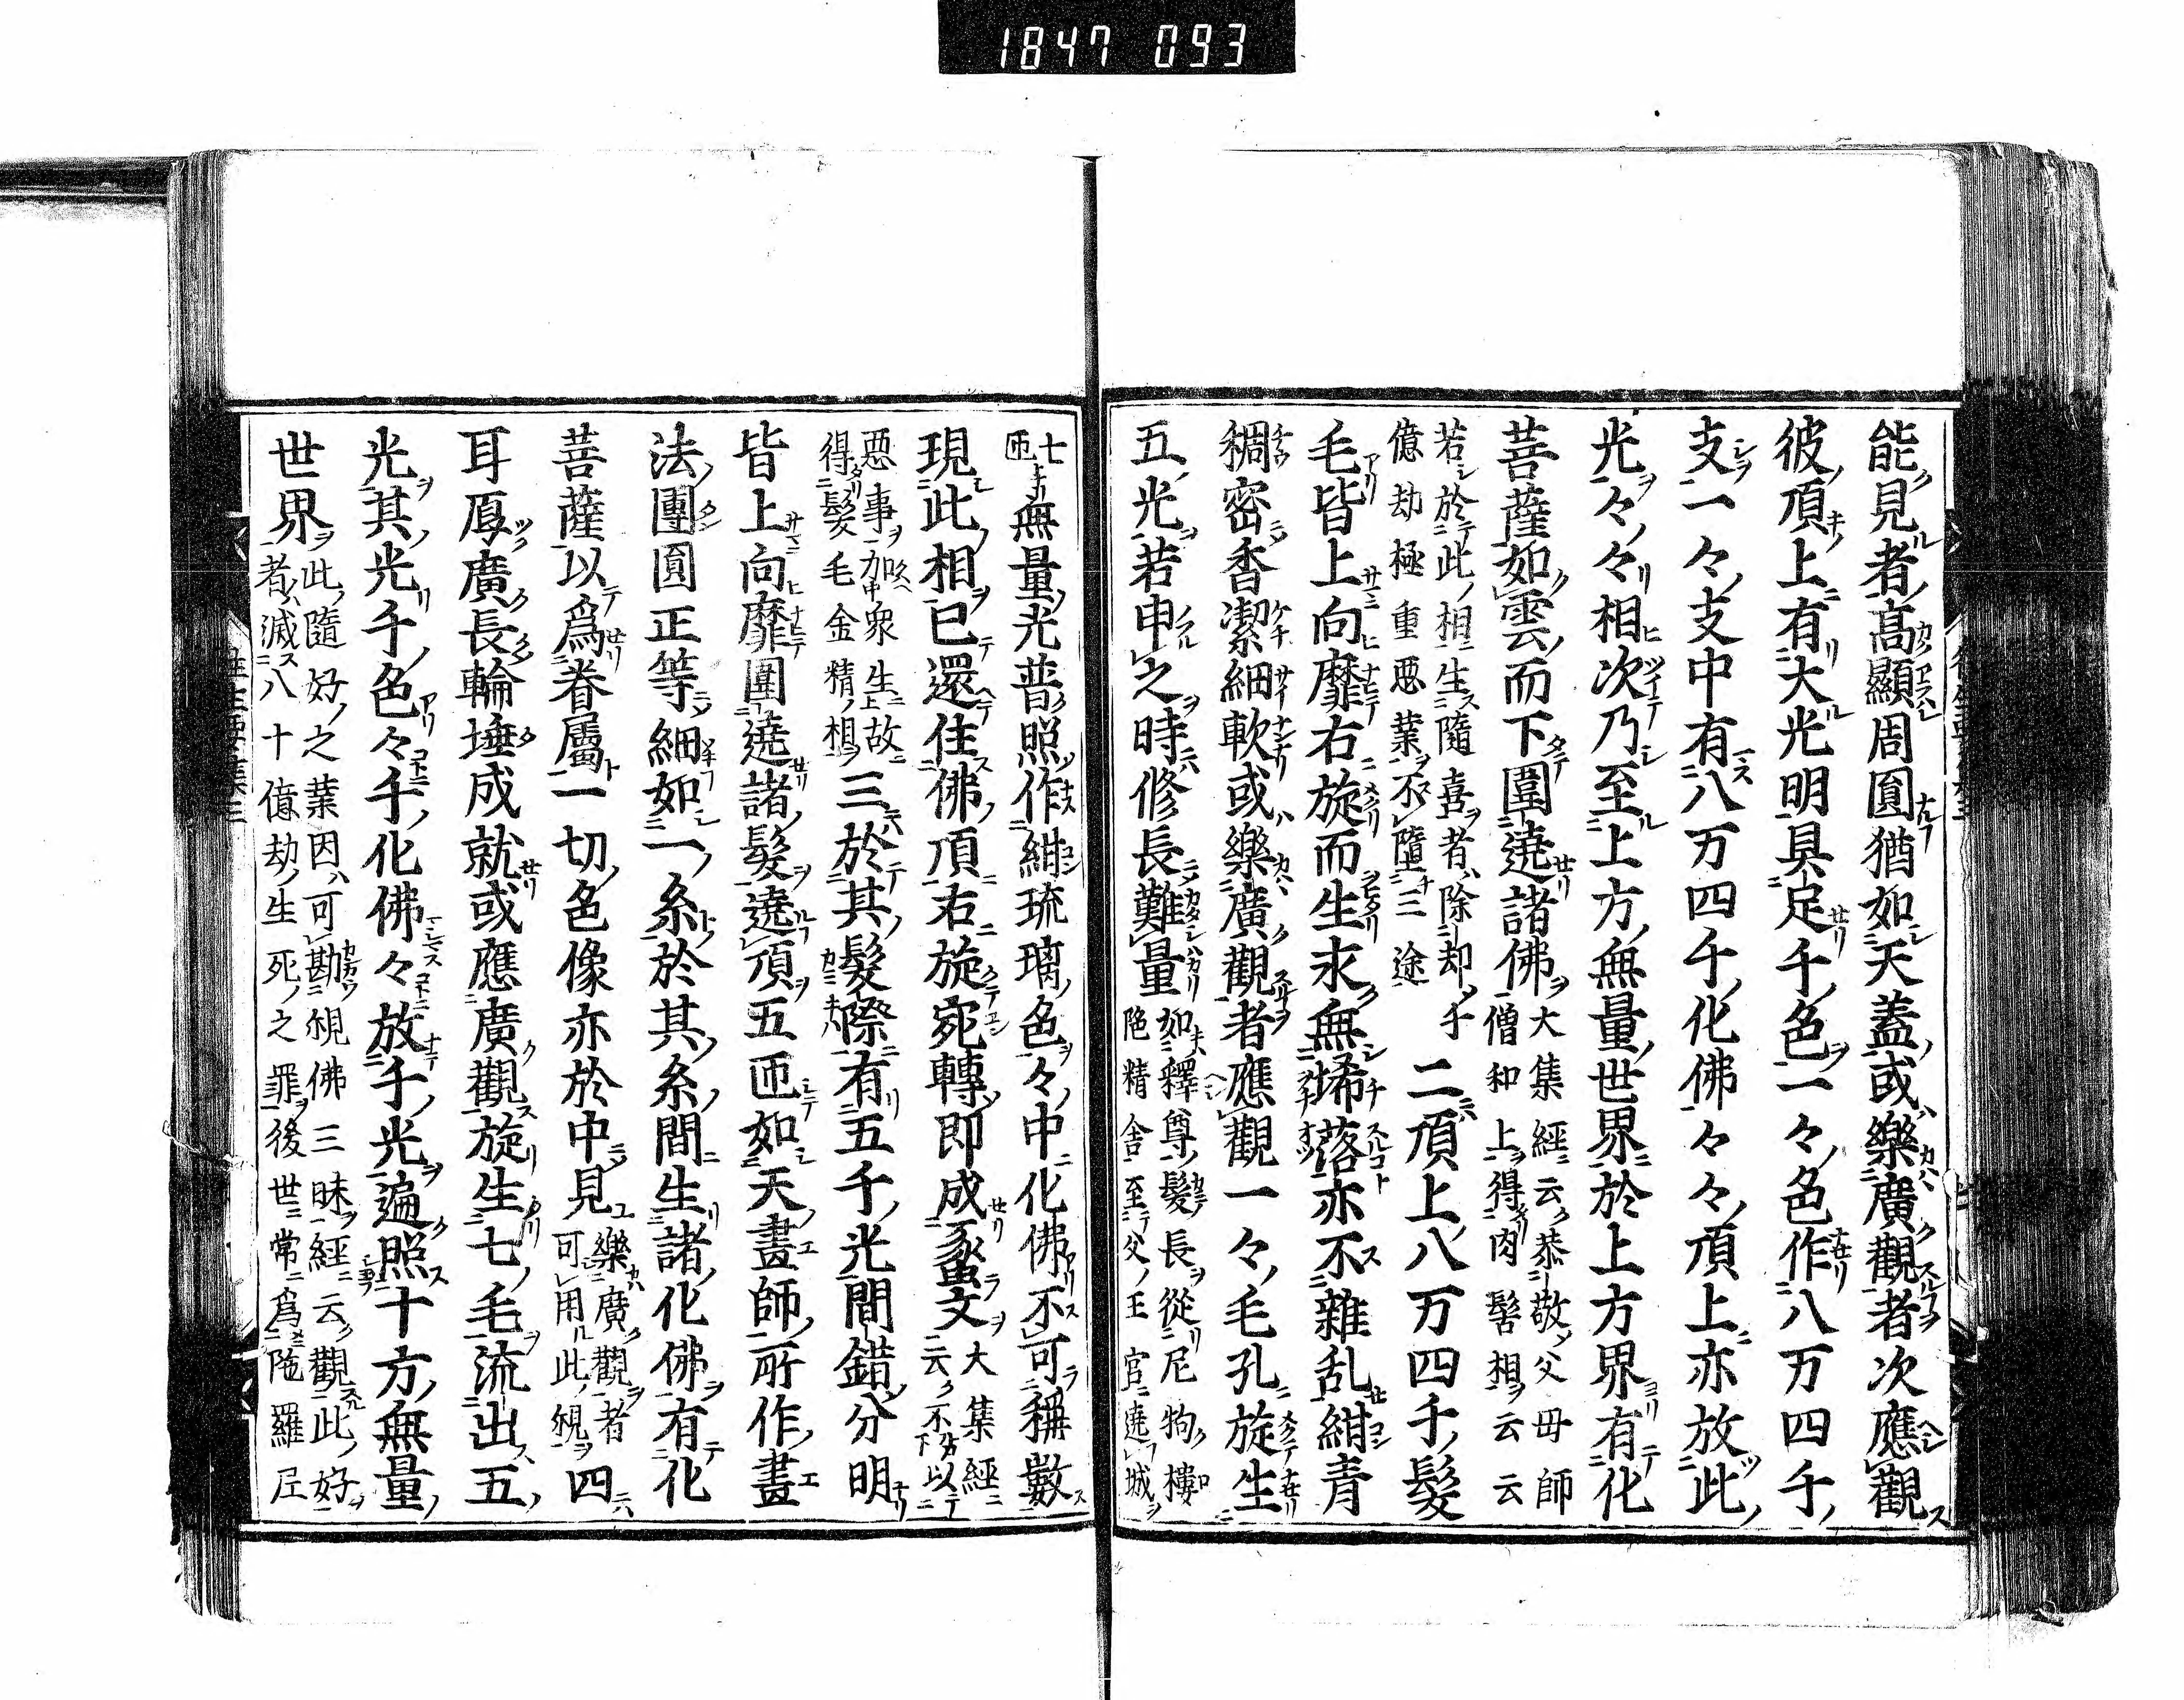 1847 093
能見者高顯周圓猶如天蓋或樂廣觀者次應觀
彼頂上有大光明具足千色一々色作八万四千
支一々支中有八万四千化佛々々頂上亦放此
光々々相次乃至上方無量世界於上方界有化
菩薩如雲而下圍遶諸佛
大集經云恭敬父母師
僧和上得肉髻相云云
若於此相生隨喜者除却千
億劫極重惡業不墮三途
二頂上八万四千髮
毛皆上向靡右旋而生永無㛓落亦不雜乱紺青
稠密香潔細軟或樂廣觀者應觀一々毛孔旋生
五光若申之時修長難量
如釋尊髮長從尼拘樓
陁精舍至父王宮遶城
七
匝
無量光普照作紺琉璃色々中化佛不可稱數
現此相已還住佛頂右旋宛轉即成蠡文
大集經
云不以
惡事加衆生故
得髮毛金精相
三於其髮際有五千光間錯分明
皆上向靡圍遶諸髮遶頂五匝如天畫師所作畫
法團圓正等細如一糸於其糸間生諸化佛有化
菩薩以爲眷屬一切色像亦於中見
樂廣觀者
可用此觀
四
耳厚廣長輪埵成就或應廣觀旋生七毛流出五
光其光千色々千化佛々放千光遍照十方無量
世界
此隨好之業因可勘觀佛三昧經云觀此好
者滅八十億劫生死之罪後世常爲陁羅尼